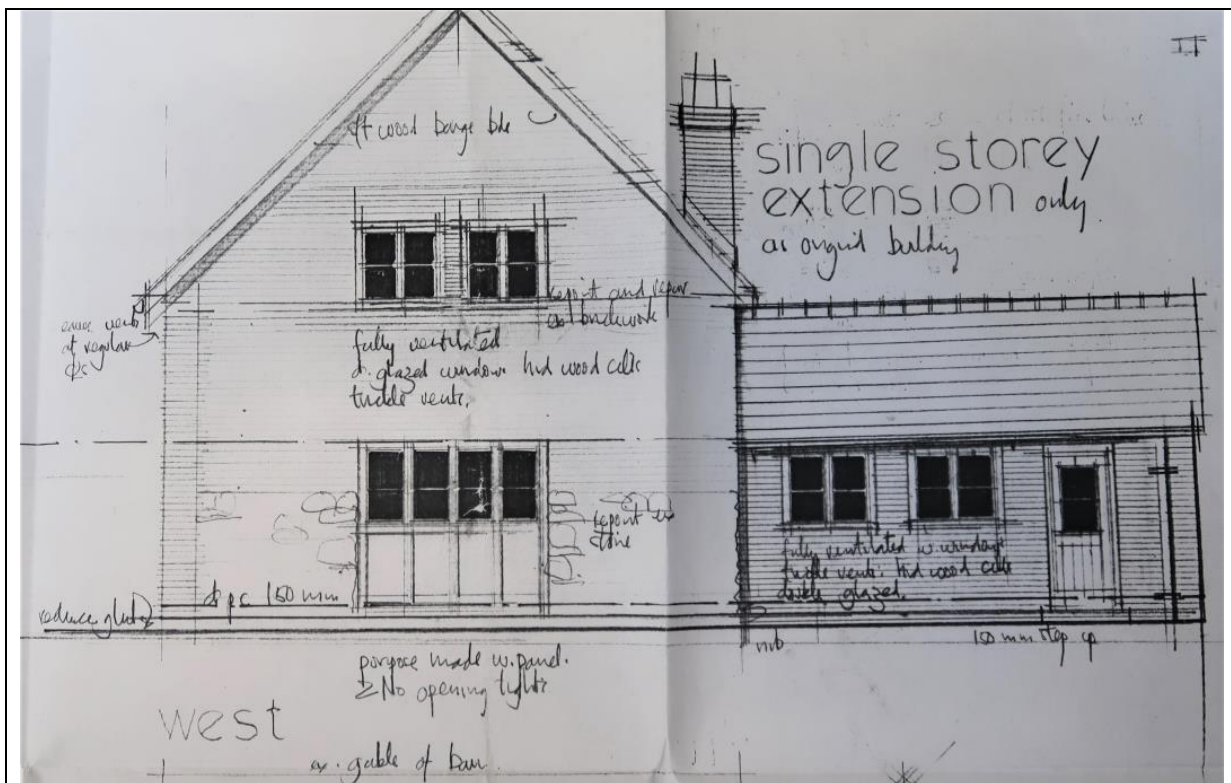 wood barge bds
single storey
extension only
as original building
eaves vents
at regular
repoint and repair
brickwork
fully ventilated
d. glazed windows hd wood cills
trickle vents.
repoint ex
stone
fully ventilated w. windows
trickle vents. hd wood cills
double glazed.
dpc 150 mm
reduce
150 mm step up
purpose made w. panel.
No opening lights
west
ex. gable of barn